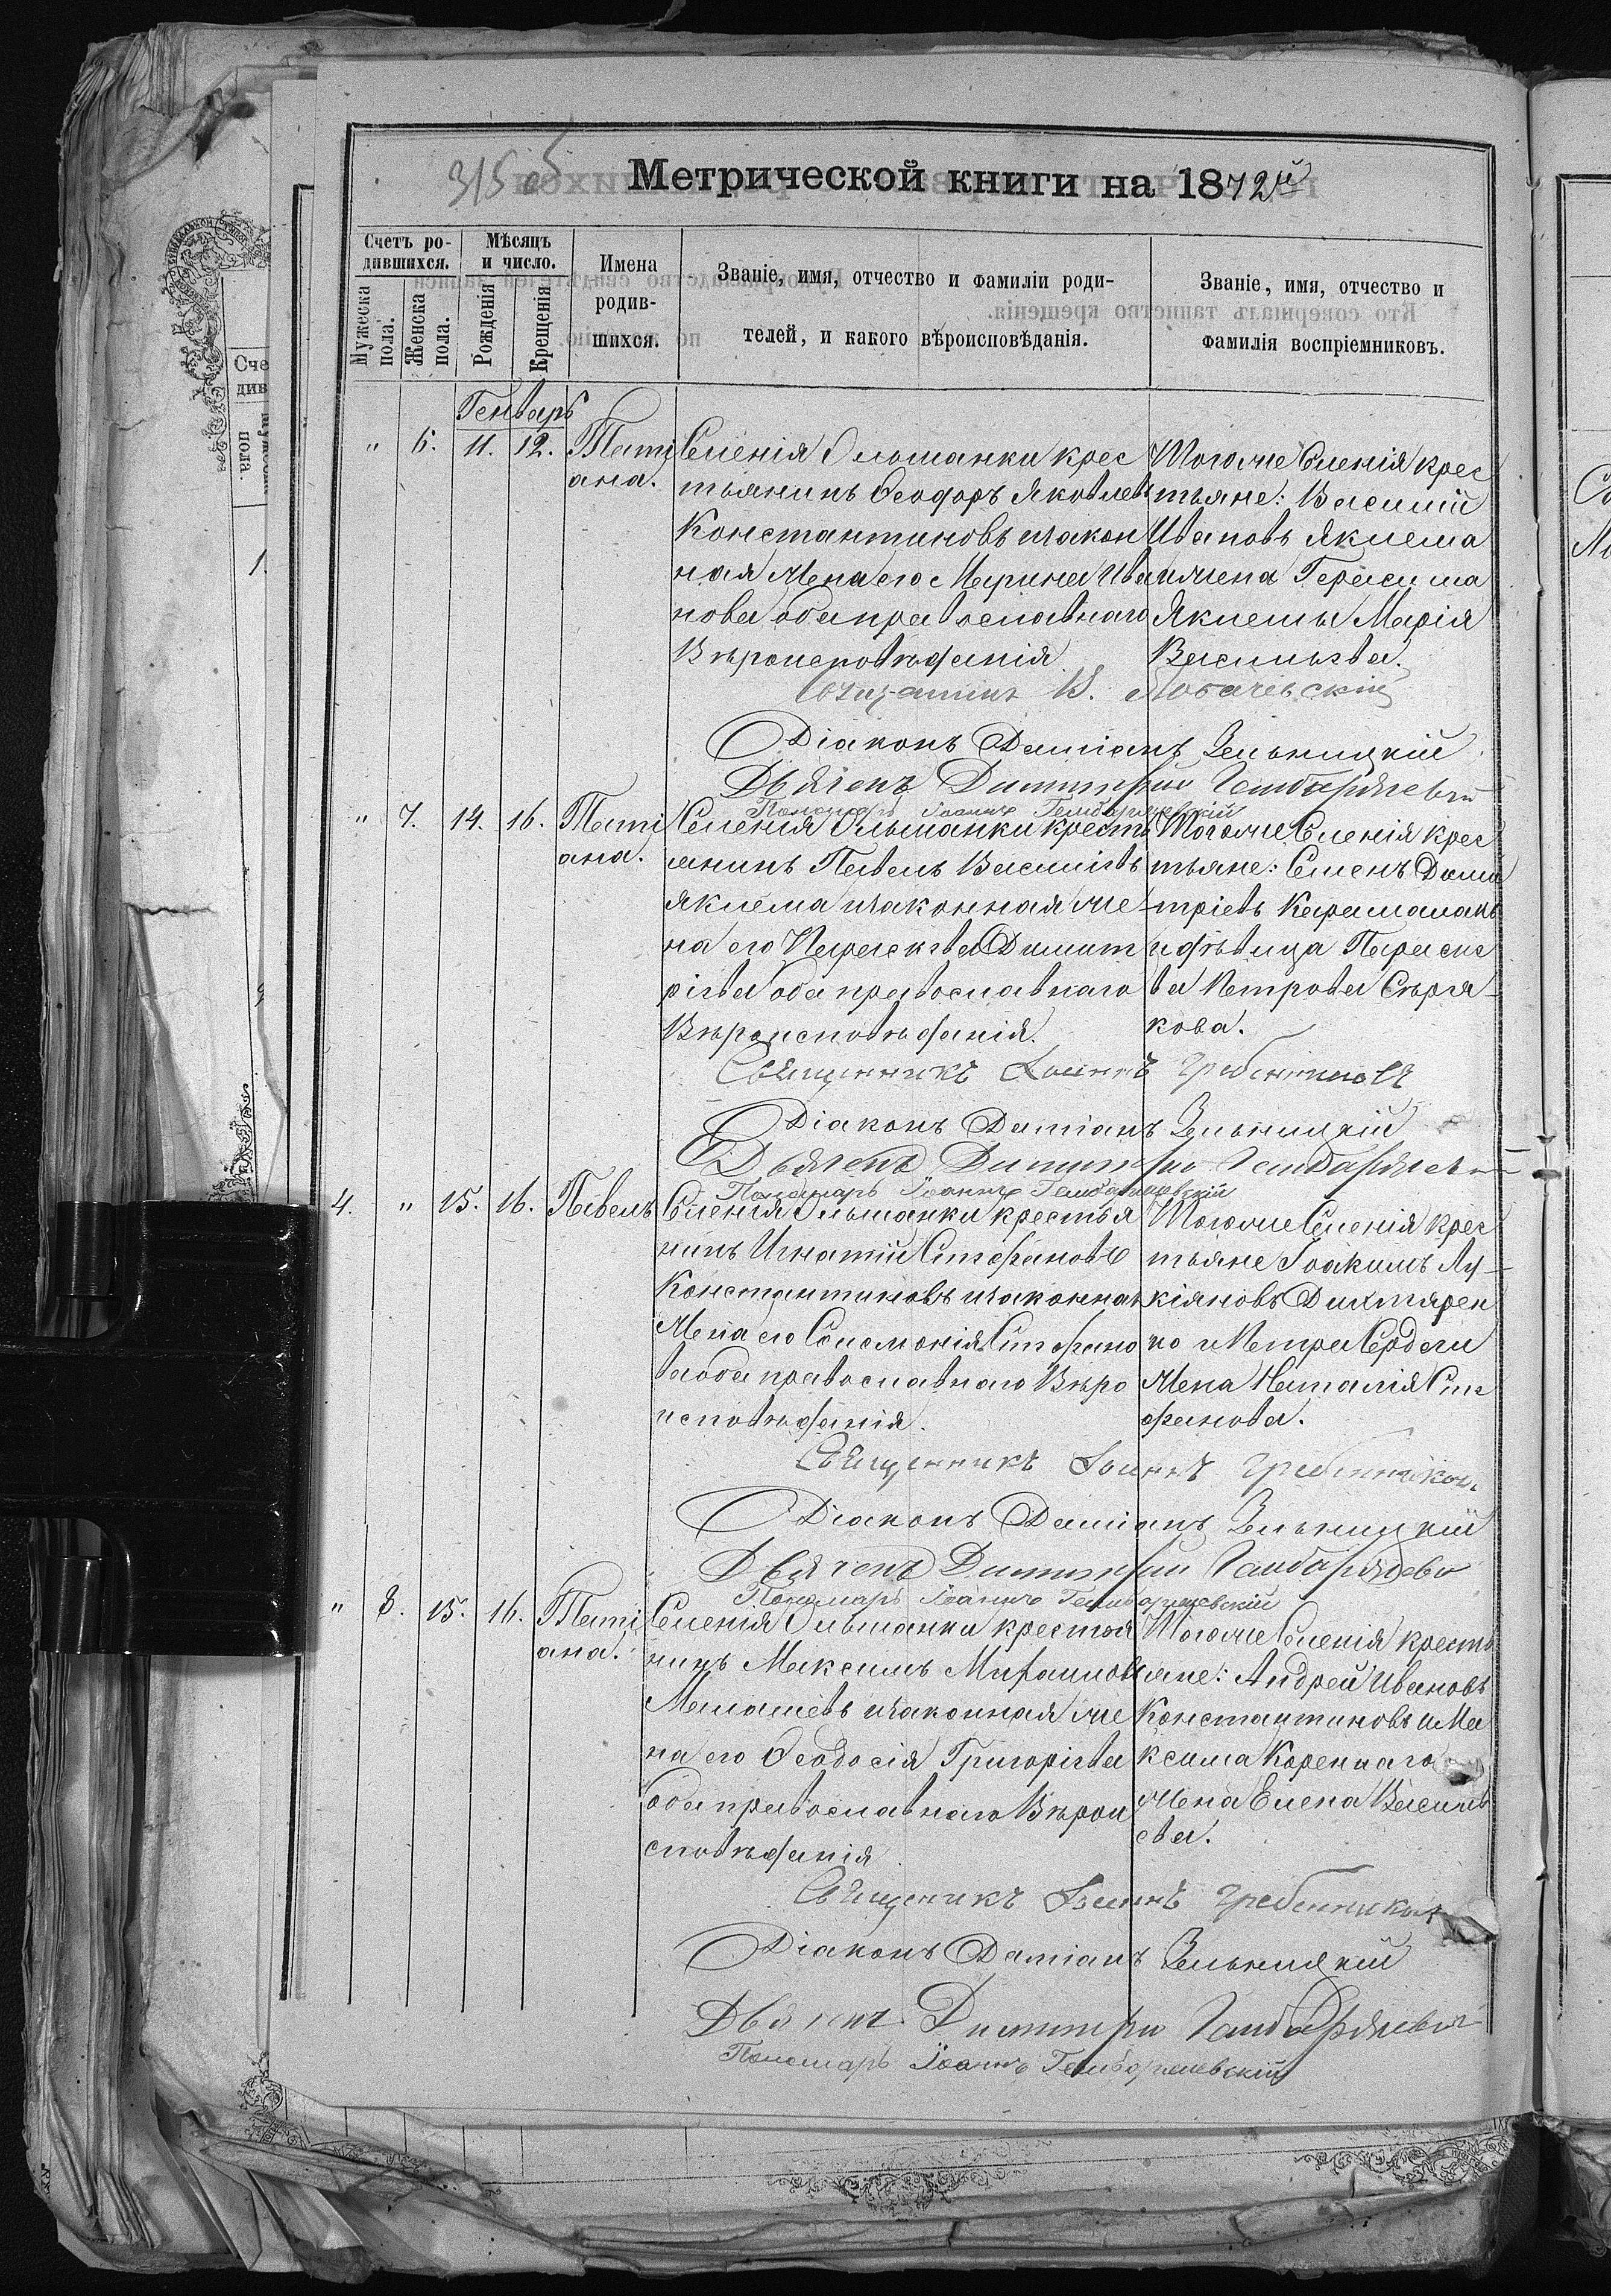 315 об
Метрической книги на 1872й
Счетъ ро-
дившихся.
Мѣсяцъ
и число.
Имена
родив-
шихся.
Званіе, имя, отчество и фамиліи роди-
телей, и какого вѣроисповѣданія.
Званіе, имя, отчество и
фамилія воспріемниковъ.
Мужеска
пола.
Женска
пола.
Рожденія
Крещенія
Генварь
" 6. 11. 12. Тати
ана.
Селенія Ольшанки крес
тьянинъ Ѳеодоръ Яковлевъ
Константиновъ изакон
ная жена его Марина Ива
нова оба православнаго
Вѣроисповѣданія
Тогоже Селенія крес
тьяне: Василій
Ивановъ Якиема
ижена Герасима
Якиемы Марія
Васильева.
В.
Діаконъ Даміанъ Зельницкій
Дьячекъ Димитрій
Пономарь Іоаннъ
" 7. 14. 16. Тати
ана.
Селенія Ольшанки кресть
янинъ Павелъ Василіевъ
Якиема изаконная же
на его Параскева Димит
ріева оба православнаго
Вѣроисповѣданія.
Тогоже Селенія крес
тьяне: Семенъ Дими
тріевъ Карамаланъ
идѣвица Параске
ва Петрова Сѣря-
кова.
Священникъ Іоаннъ Гребенниковъ
Діаконъ Даміанъ Зельницкій
Дьячекъ Димитрій
Пономарь Іоаннъ
4. " 15. 16. Павелъ
Селенія Ольшанки крестья
нинъ Игнатій Стефановъ
Константиновъ изаконная
жена его Соломонія Стефано
ва оба православнаго Вѣро
исповѣданія.
Тогоже Селенія крес
тьяне Іоакимъ Лу-
кіяновъ Дихтярен
ко и Петра Сердеги
жена Наталія Сте
фанова.
Священникъ Іоаннъ Гребенников
Діаконъ Даміанъ Зельницкій
Дьячекъ Димитрій
Пономарь Іоаннъ
" 8. 15. 16. Тати
ана.
Селенія Ольшанки крестья
нинъ Максимъ Михаиловъ
изаконная же
на его Ѳеодосія Григоріева
оба православнаго Вѣрои
сповѣданія.
Тогоже Селенія кресть
яне: Андрей Ивановъ
Константиновъ и Ма
ксима Кореннаго
жена Елена Василь
ева.
Священикъ Іоаннъ Гребенников
Діаконъ Даміанъ Зельницкій
Дьячекъ Димитри
Пономарь Іоаннъ